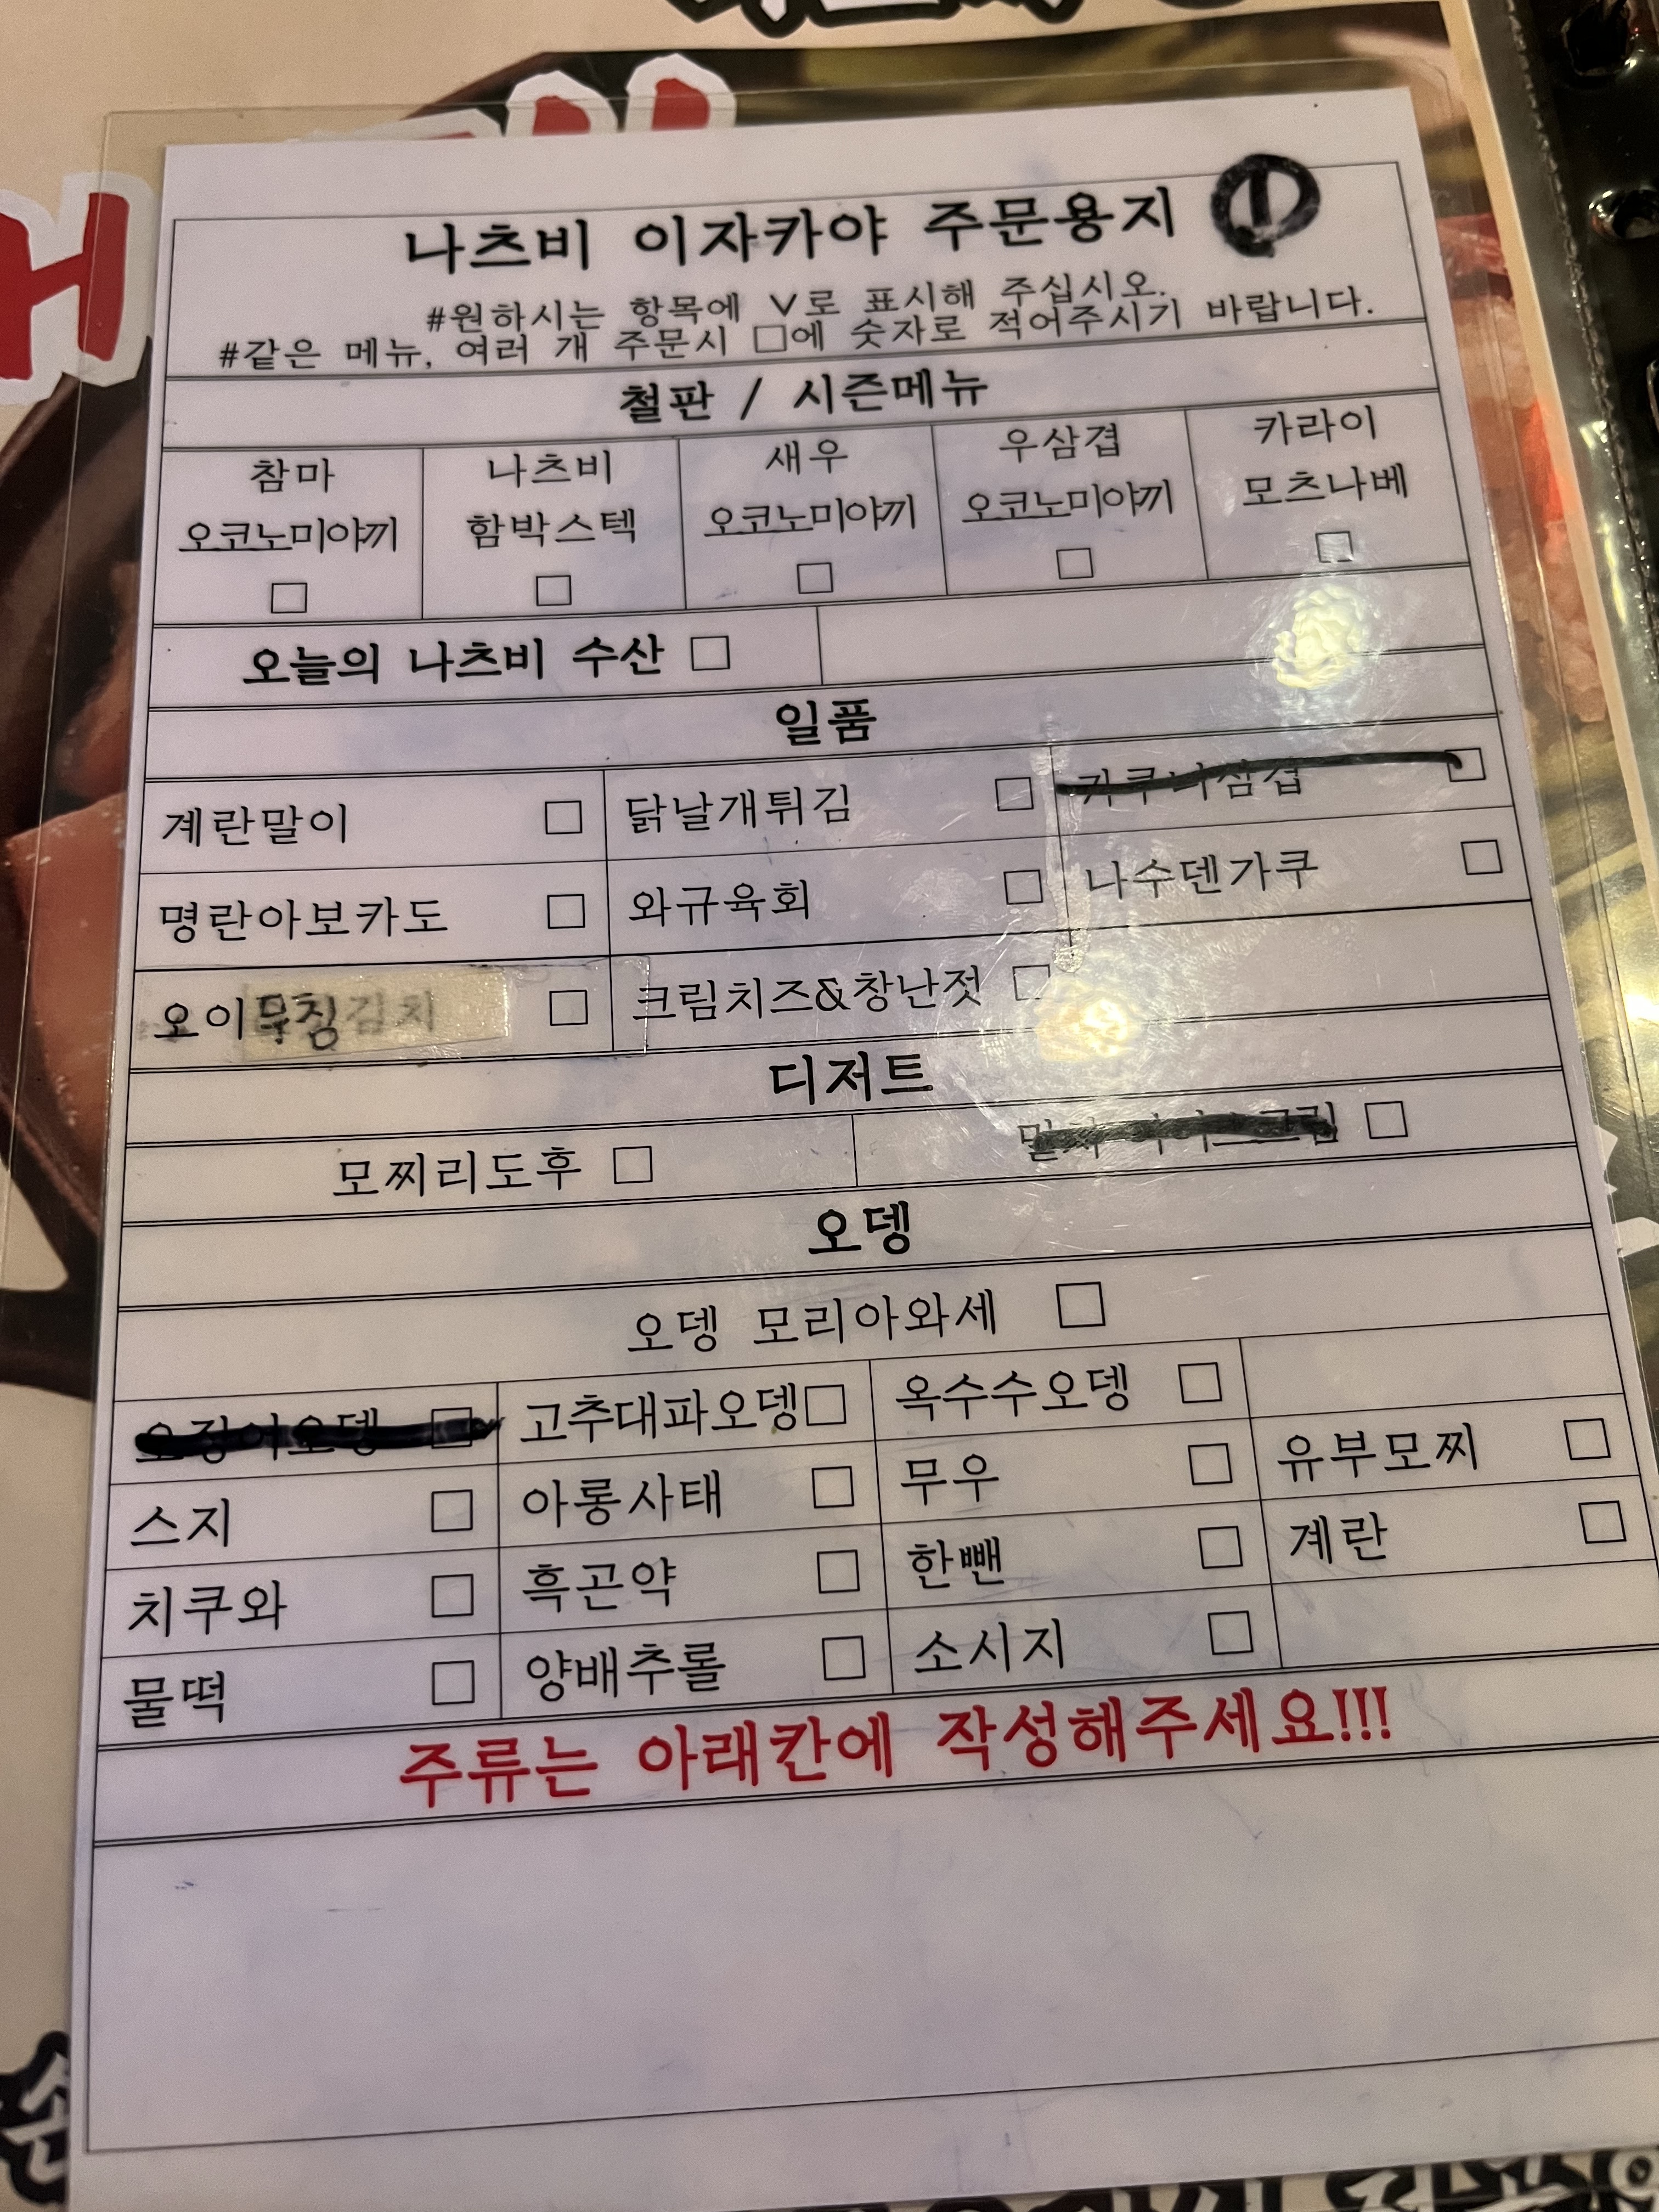 나츠비 이자카야 주문용지 ①
#원하시는 항목에 V로 표시해 주십시오.
#같은 메뉴, 여러 개 주문시 □에 숫자로 적어주시기 바랍니다.
철판 / 시즌메뉴
참마 오코노미야끼 □
나츠비 함박스텍 □
새우 오코노미야끼 □
우삼겹 오코노미야끼 □
카라이 모츠나베 □
오늘의 나츠비 수산 □
일품
계란말이 □ 닭날개튀김 □ 카쿠니삼겹 □
명란아보카도 □ 와규육회 □ 나수덴가쿠 □
오이무침김치 □ 크림치즈&창난젓 □
디저트
모찌리도후 □ □
오뎅
오뎅 모리아와세 □
오징어오뎅 □ 고추대파오뎅 □ 옥수수오뎅 □
스지 □ 아롱사태 □ 무우 □ 유부모찌 □
치쿠와 □ 흑곤약 □ 한뺀 □ 계란 □
물떡 □ 양배추롤 □ 소시지 □
주류는 아래칸에 작성해주세요!!!